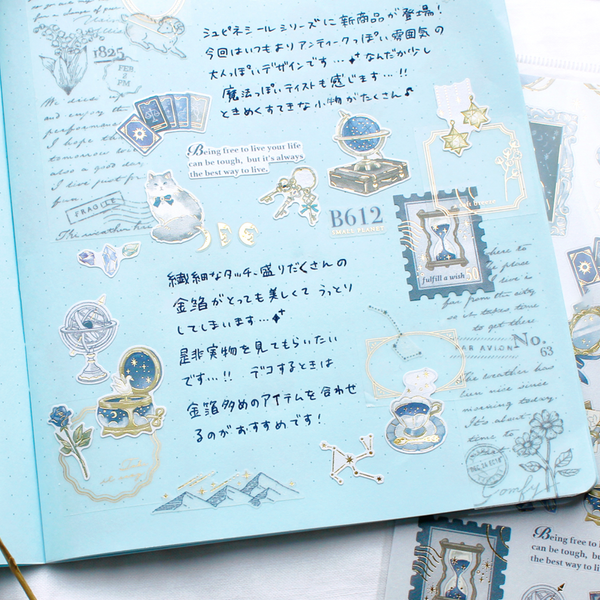 シュピネシールシリーズに新商品が登場!
今回はいつもよりアンティークっぽい雰囲気の
大人っぽいデザインです…なんだか少し
魔法っぽいテイストも感じます…!!
ときめくすてきな小物がたくさん♪
1825
Being free to live your life
can be tough, but it's always
the best way to live.
FRAGILE
The weather here
B612
SMALL PLANET
fulfill a wish 50
繊細なタッチ、盛りだくさんの
金箔がとっても美しくて うっとり
してしまいます…
是非実物を見てもらいたい
です…!! デコするときは
金箔多めのアイテムを合わせ
るのがおすすめです!
PAR AVION
No.
63
The weather has
been nice since
morning today.
It's about
time to
Comfy
Being free to live you
can be tough, but
the best way to li